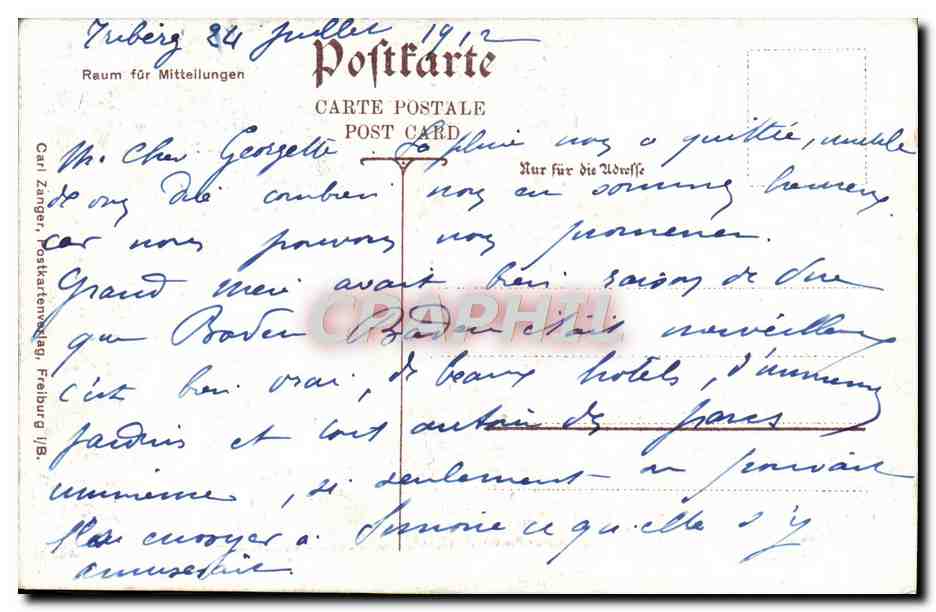 Triberg 24 Juillet 1912
Postkarte
Raum für Mitteilungen
CARTE POSTALE
POST CARD
Nur für die Adresse
Carl Zänger, Postkartenverlag, Freiburg i/B.
M. Cher Georgette. La pluie nous a quittée, inutile
de vous dire combien nous en sommes heureux
car nous pouvons nous promener.
Grand mère avait bien raison de dire
que Baden Baden était merveilleux
c'est bien vrai, de beaux hôtels, d'immenses
jardins et tout autour des parcs
immenses, si seulement on pouvait
envoyer à Simone ce qu'elle s'y
amuserait.
CRAPHIL